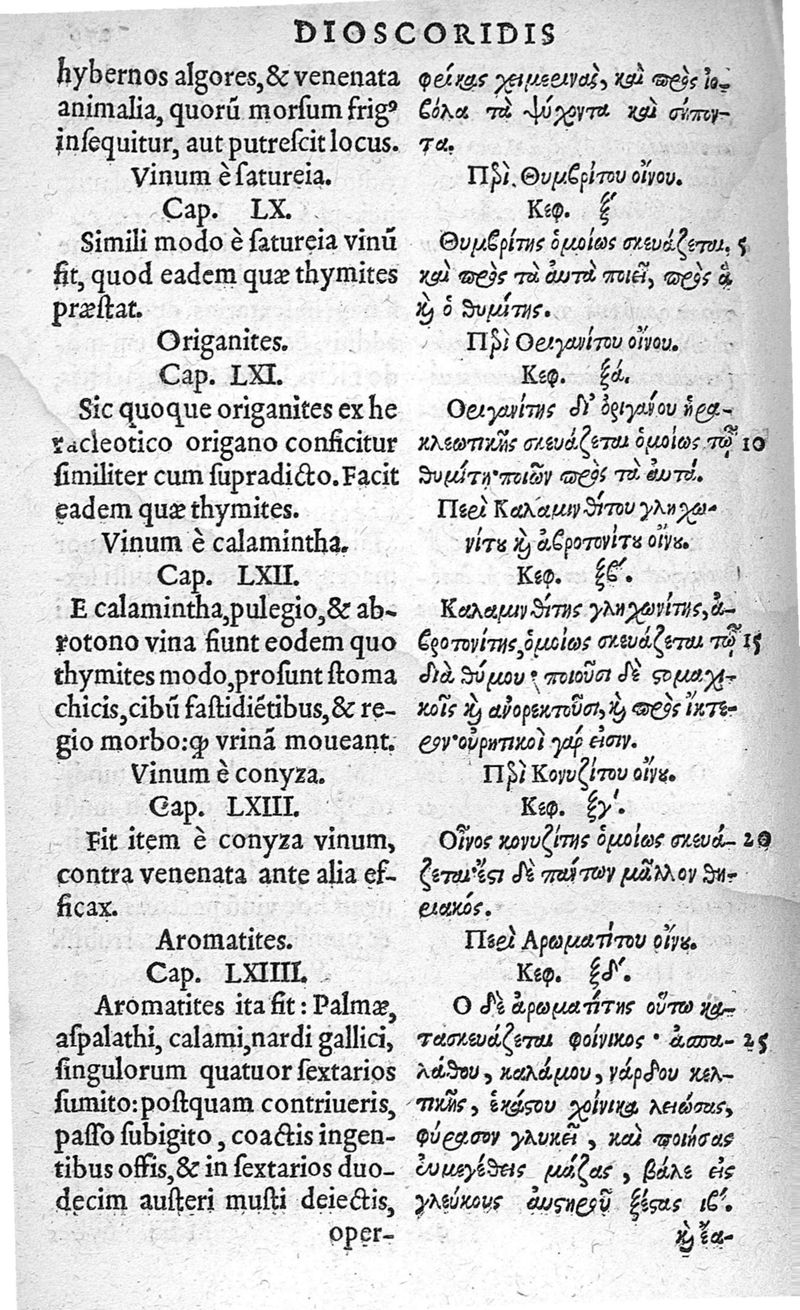 DIOSCORIDIS
hybernos algores, & venenata
animalia, quorũ morsum frigꝰ
insequitur, aut putrescit locus.
Vinum è satureia.
Cap. LX.
Simili modo è satureia vinũ
fit, quod eadem quæ thymites
præstat.
Origanites.
Cap. LXI.
Sic quoque origanites ex he
racleotico origano conficitur
similiter cum supradicto. Facit
eadem quæ thymites.
Vinum è calamintha.
Cap. LXII.
E calamintha, pulegio, & ab-
rotono vina fiunt eodem quo
thymites modo, prosunt stoma
chicis, cibũ fastidiẽtibus, & re-
gio morbo: ꝙ vrinã moueant.
Vinum è conyza.
Cap. LXIII.
Fit item è conyza vinum,
contra venenata ante alia ef-
ficax.
Aromatites.
Cap. LXIIII.
Aromatites ita fit: Palmæ,
aspalathi, calami, nardi gallici,
singulorum quatuor sextarios
sumito: postquam contriueris,
passo subigito, coactis ingen-
tibus offis, & in sextarios duo-
decim austeri musti deiectis,
oper-
φρίκας χειμερινὰς, καὶ πρὸς ἰο-
βόλα τὰ ψύχοντα καὶ σήπον-
τα.
Πρὶ Θυμβρίτου οἴνου.
Κεφ. ξ΄
Θυμβρίτης ὁμοίως σκευάζεται. 5
καὶ πρὸς τὰ ἀυτὰ ποιεῖ, πρὸς ἃ
κὴ ὁ θυμίτης.
Πρὶ Οριγανίτου οἴνου.
Κεφ. ξά.
Οριγανίτης δἰ ὀριγάνου ἡρα-
κλεωτικῆς σκευάζεται ὁμοίως τῷ 10
θυμίτῃ· ποιῶν πρὸς τὰ ἀυτά.
Περὶ Καλαμινθίτου γληχω-
νίτου κὴ ἀβροτονίτου οἴνου.
Κεφ. ξβ΄.
Καλαμινθίτης γληχωνίτης, ἀ-
βροτονίτης, ὁμοίως σκευάζεται τῷ 15
διὰ θύμου· ποιοῦσι δὲ στομαχι-
κοῖς κὴ ἀνορεκτοῦσι, κὴ πρὸς ἴκτε-
ρον· οὐρητικοὶ γάρ εἰσιν.
Πρὶ Κονυζίτου οἴνου.
Κεφ. ξγ΄.
Οἶνος κονυζίτης ὁμοίως σκευά- 20
ζεται· ἔστι δὲ πάντων μᾶλλον θη-
ριακός.
Περὶ Αρωματίτου οἴνου.
Κεφ. ξδ΄.
Ο δὲ ἀρωματίτης οὕτω κα-
τασκευάζεται φοίνικος· ἀσπα- 25
λάθου, καλάμου, νάρδου κελ-
τικῆς, ἑκάστου χοίνικα λειώσας,
φύρασον γλυκεῖ, καὶ ποιήσας
ἐυμεγέθεις μάζας, βάλε εἰς
γλεύκους ἀυστηροῦ ξέστας ιβ΄.
κὴ ἔα-